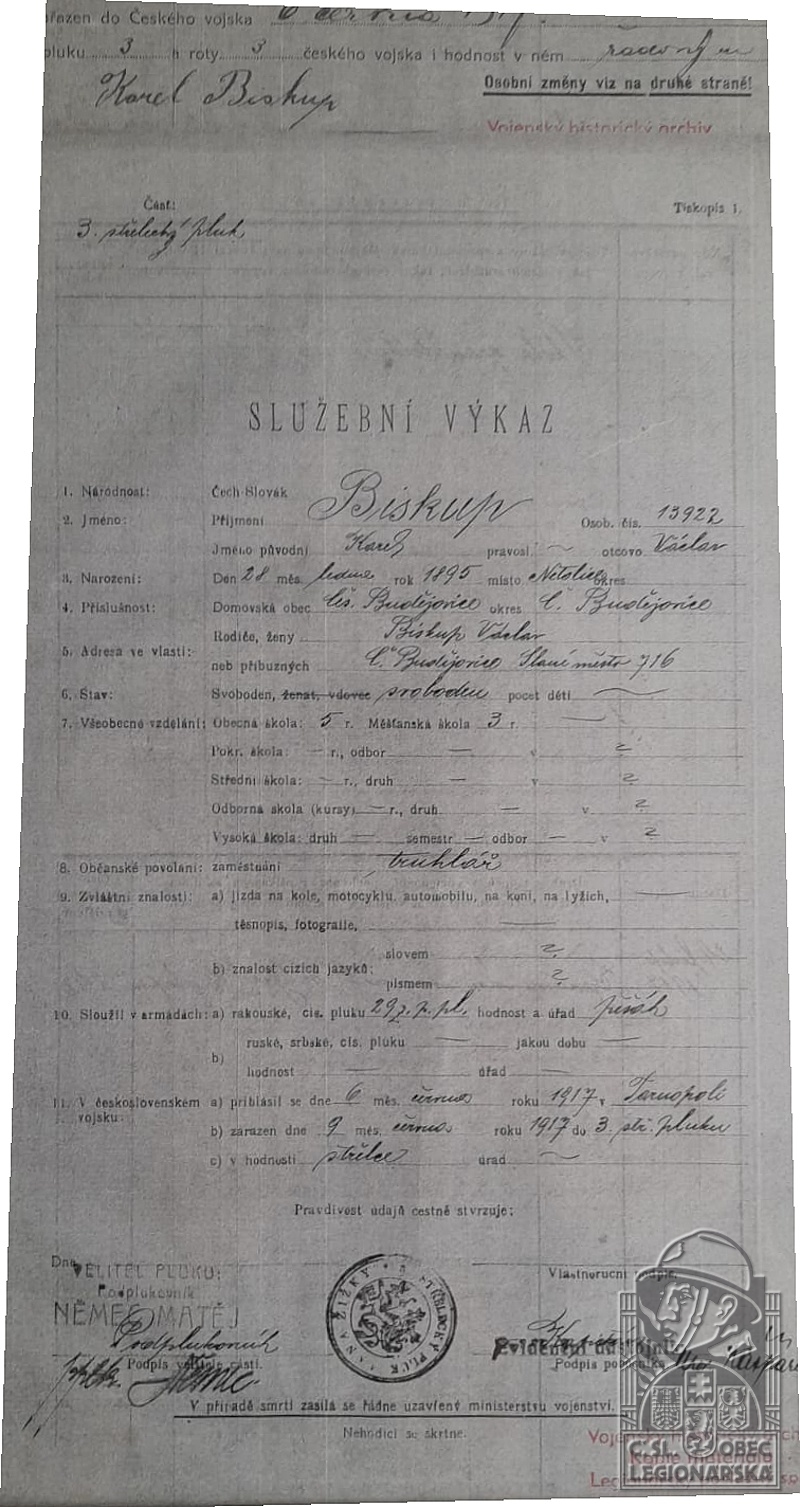 řazen do Českého vojska 6 června 1917.
pluku 3 h roty 3 českého vojska i hodnost v něm řadovým
Osobní změny viz na druhé straně!
Karel Biskup
Vojenský historický archiv
Část:
Tiskopis 1.
3. střelecký pluk
SLUŽEBNÍ VÝKAZ
1. Národnost: Čech-Slovák
2. Jméno: Příjmení Biskup Osob. čís. 13922
Jméno původní Karel pravosl. otcovo Václav
3. Narození: Den 28 měs. ledna rok 1895 místo Netolice okres
4. Příslušnost: Domovská obec Čes. Budějovice okres Č. Budějovice
Rodiče, ženy Biskup Václav
5. Adresa ve vlasti:
neb příbuzných Č. Budějovice Staré město 716
6. Stav: Svoboden, ženat, vdovec svoboden počet dětí
7. Všeobecné vzdělání: Obecná škola: 5 r. Měšťanská škola 3 r.
Pokr. škola: — r., odbor — v
Střední škola: — r., druh — v
Odborná škola (kursy) — r., druh — v
Vysoká škola: druh — semestr — odbor — v
8. Občanské povolání: zaměstnání truhlář
9. Zvláštní znalosti: a) jízda na kole, motocyklu, automobilu, na koni, na lyžích,
těsnopis, fotografie,
slovem
b) znalost cizích jazyků:
písmem
10. Sloužil v armádách: a) rakouské, čís. pluku 29 p. pl. hodnost a úřad pěšák
ruské, srbské, čís. pluku — jakou dobu —
b)
hodnost — úřad —
11. V československém vojsku: a) přihlásil se dne 6 měs. června roku 1917 v Tarnopoli
b) zařazen dne 9 měs. června roku 1917 do 3. stř. pluku
c) v hodnosti střelce úřad
Pravdivost údajů čestně stvrzuje:
Dne
VELITEL PLUKU:
Podplukovník
NĚMEC MATĚJ
Podplukovník
Podpis velitele části.
Němec
JANA ŽIŽKY STŘELECKÝ PLUK
Vlastnoruční podpis.
Evidenční důstojník
Podpis
Kašpar
V případě smrti zasílá se řádně uzavřený ministerstvu vojenství.
Nehodící se škrtne.
Vojenský
Kopie materiálu
Č.SL. OBEC
LEGIONÁŘSKÁ